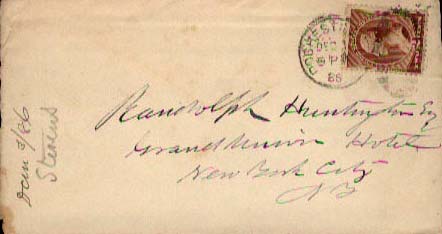 ROCHES
DEC
6 P
86
Randolph Huntington Esq
Grand Union Hotel
New York City
N Y
3/86
Stevens